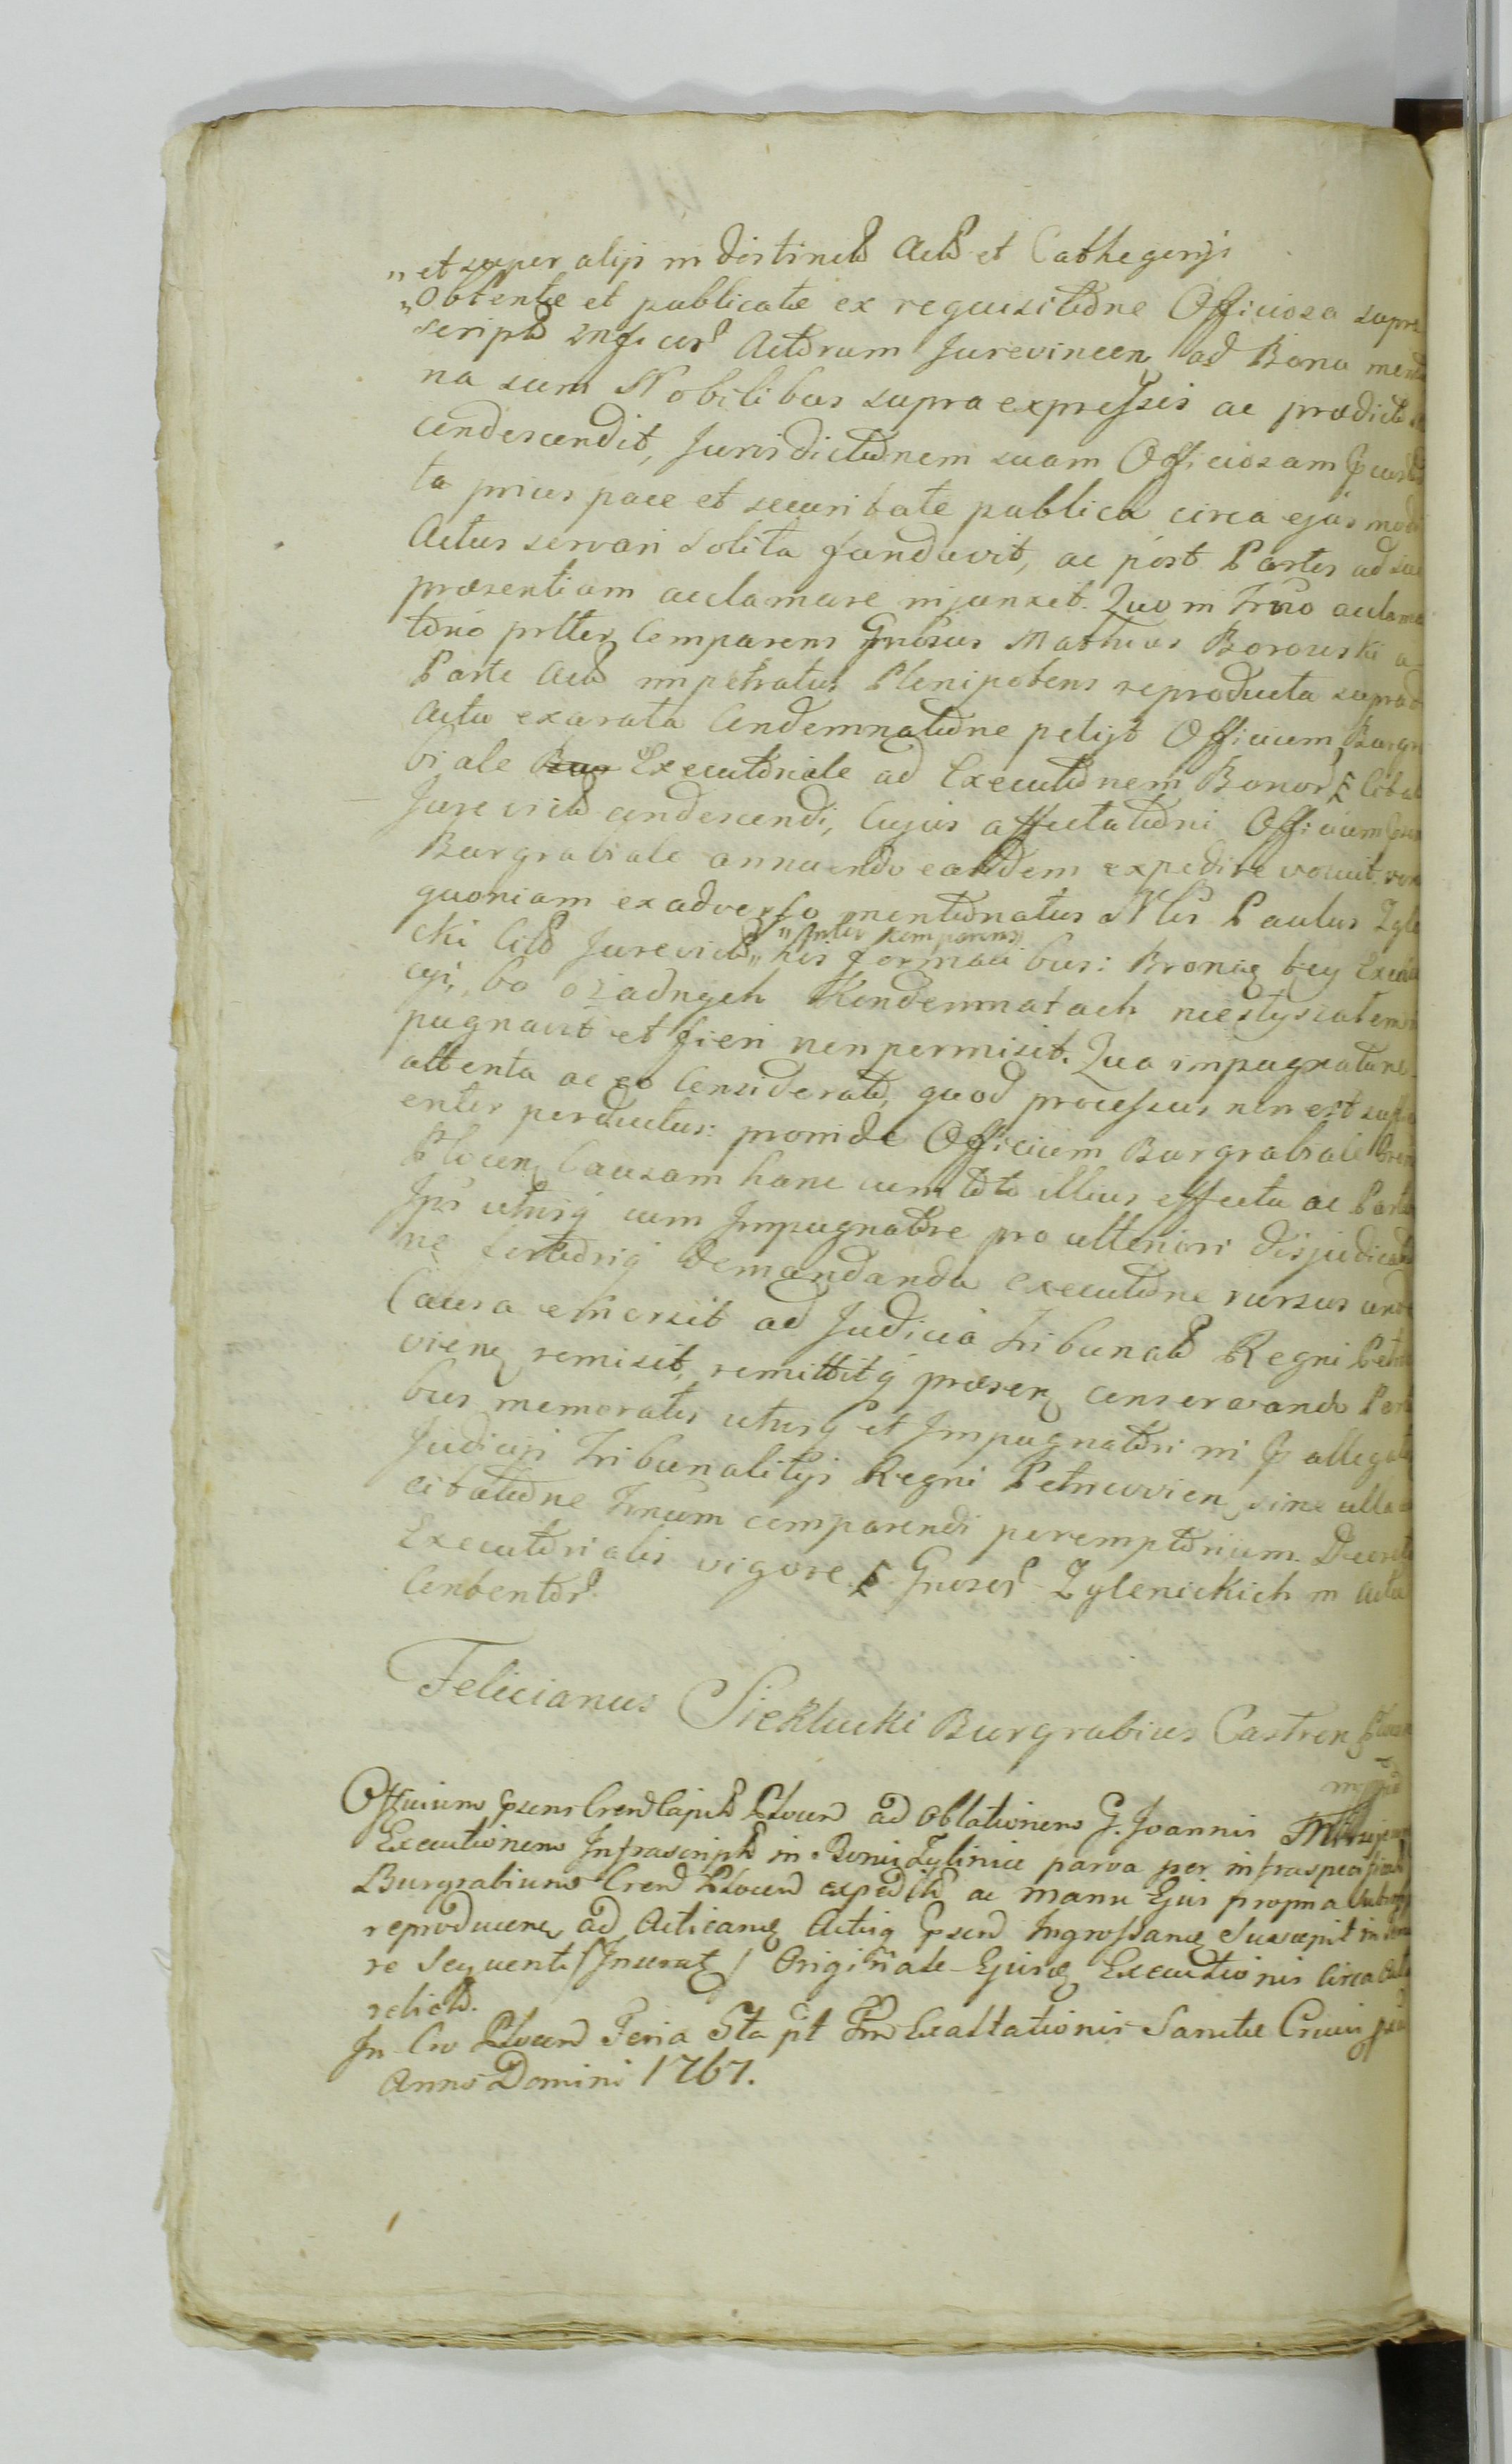 "et super alijs in distinctis Actis et Cathegorijs
"obtentæ et publicatæ ex requisitione Officiosa supra
scriptis Actorum Jurevincen ad Bona
na cum Nobilibus supra expressis ac prædictis
condescendit, Jurisdictionem suam Officiosam
ta prius pace et securitate publica circa ejusmodi
Actus servari solita fundavit, ac post Partes ad sui
præsentiam acclamare injunxit. Quo in Trno acclama
tono pttter Comparens Gnosus Mathias Borowski a
Parte Actis impetratus Plenipotens reproducta suprad
Actu exarata Condemnatione petijt Officium Burgra
biale Executoriale ad Executionem Bonor Citat
Jure victis condescendi, Cujus affectationi Officium psens
Burgrabiale annuendo eandem expedire voluit.
quoniam ex adverso mentionatus Nlis Paulus Zyle
cki Citts Jurevictis "Inter comparens" his formalibus: Bronię tey Exeku
cyi, bo o żadnych Kondemnatach niesłyszałem
pugnavit et fieri non permisit. Qua impugnatione
attenta ac eo Considerato, quod processus non est suffici
enter perductus: proinde Officium Burgrabiale
Plocen Causam hanc cum toto illius effectu ac Partes
Ips utrisq cum Impugnatore pro ulteriori disjudicatio
ne demandanda executione rursus unde
Causa emersit ad Judicia Tribunalis Regni Petri
vien remisit, remittitq præsen conservando Parti
bus memoratis utrisq et Impugnatori in allegatis
Judicijs Tribunalitijs Regni Petricovien sine ulla
citatione Trnum comparendi peremptorium. Decreti
Executorialis vigore Gnosor Zylenickich in Actu
Contentor.
Felicianus Sieklucki Burgrabius Castren Plocen
mpp
Officium psens Cren Capitle Plocen ad oblationem G. Joannis
Executionem Infrascriptis in Bonis Zylinice parva per infraspecifica
Burgrabium Cren Plocen expeditis ac manu Ejus propria subscr
reproducen ad Acticanq Actisq psen Ingrossanq Suscepit in
re Sequenti /Inserat/ Originale Ejusq Executionis circa Acta
relictis.
In Cro Plocen Feria 5ta pt Fm Exaltationis Sanctæ Crucis
Anno Domini 1767.